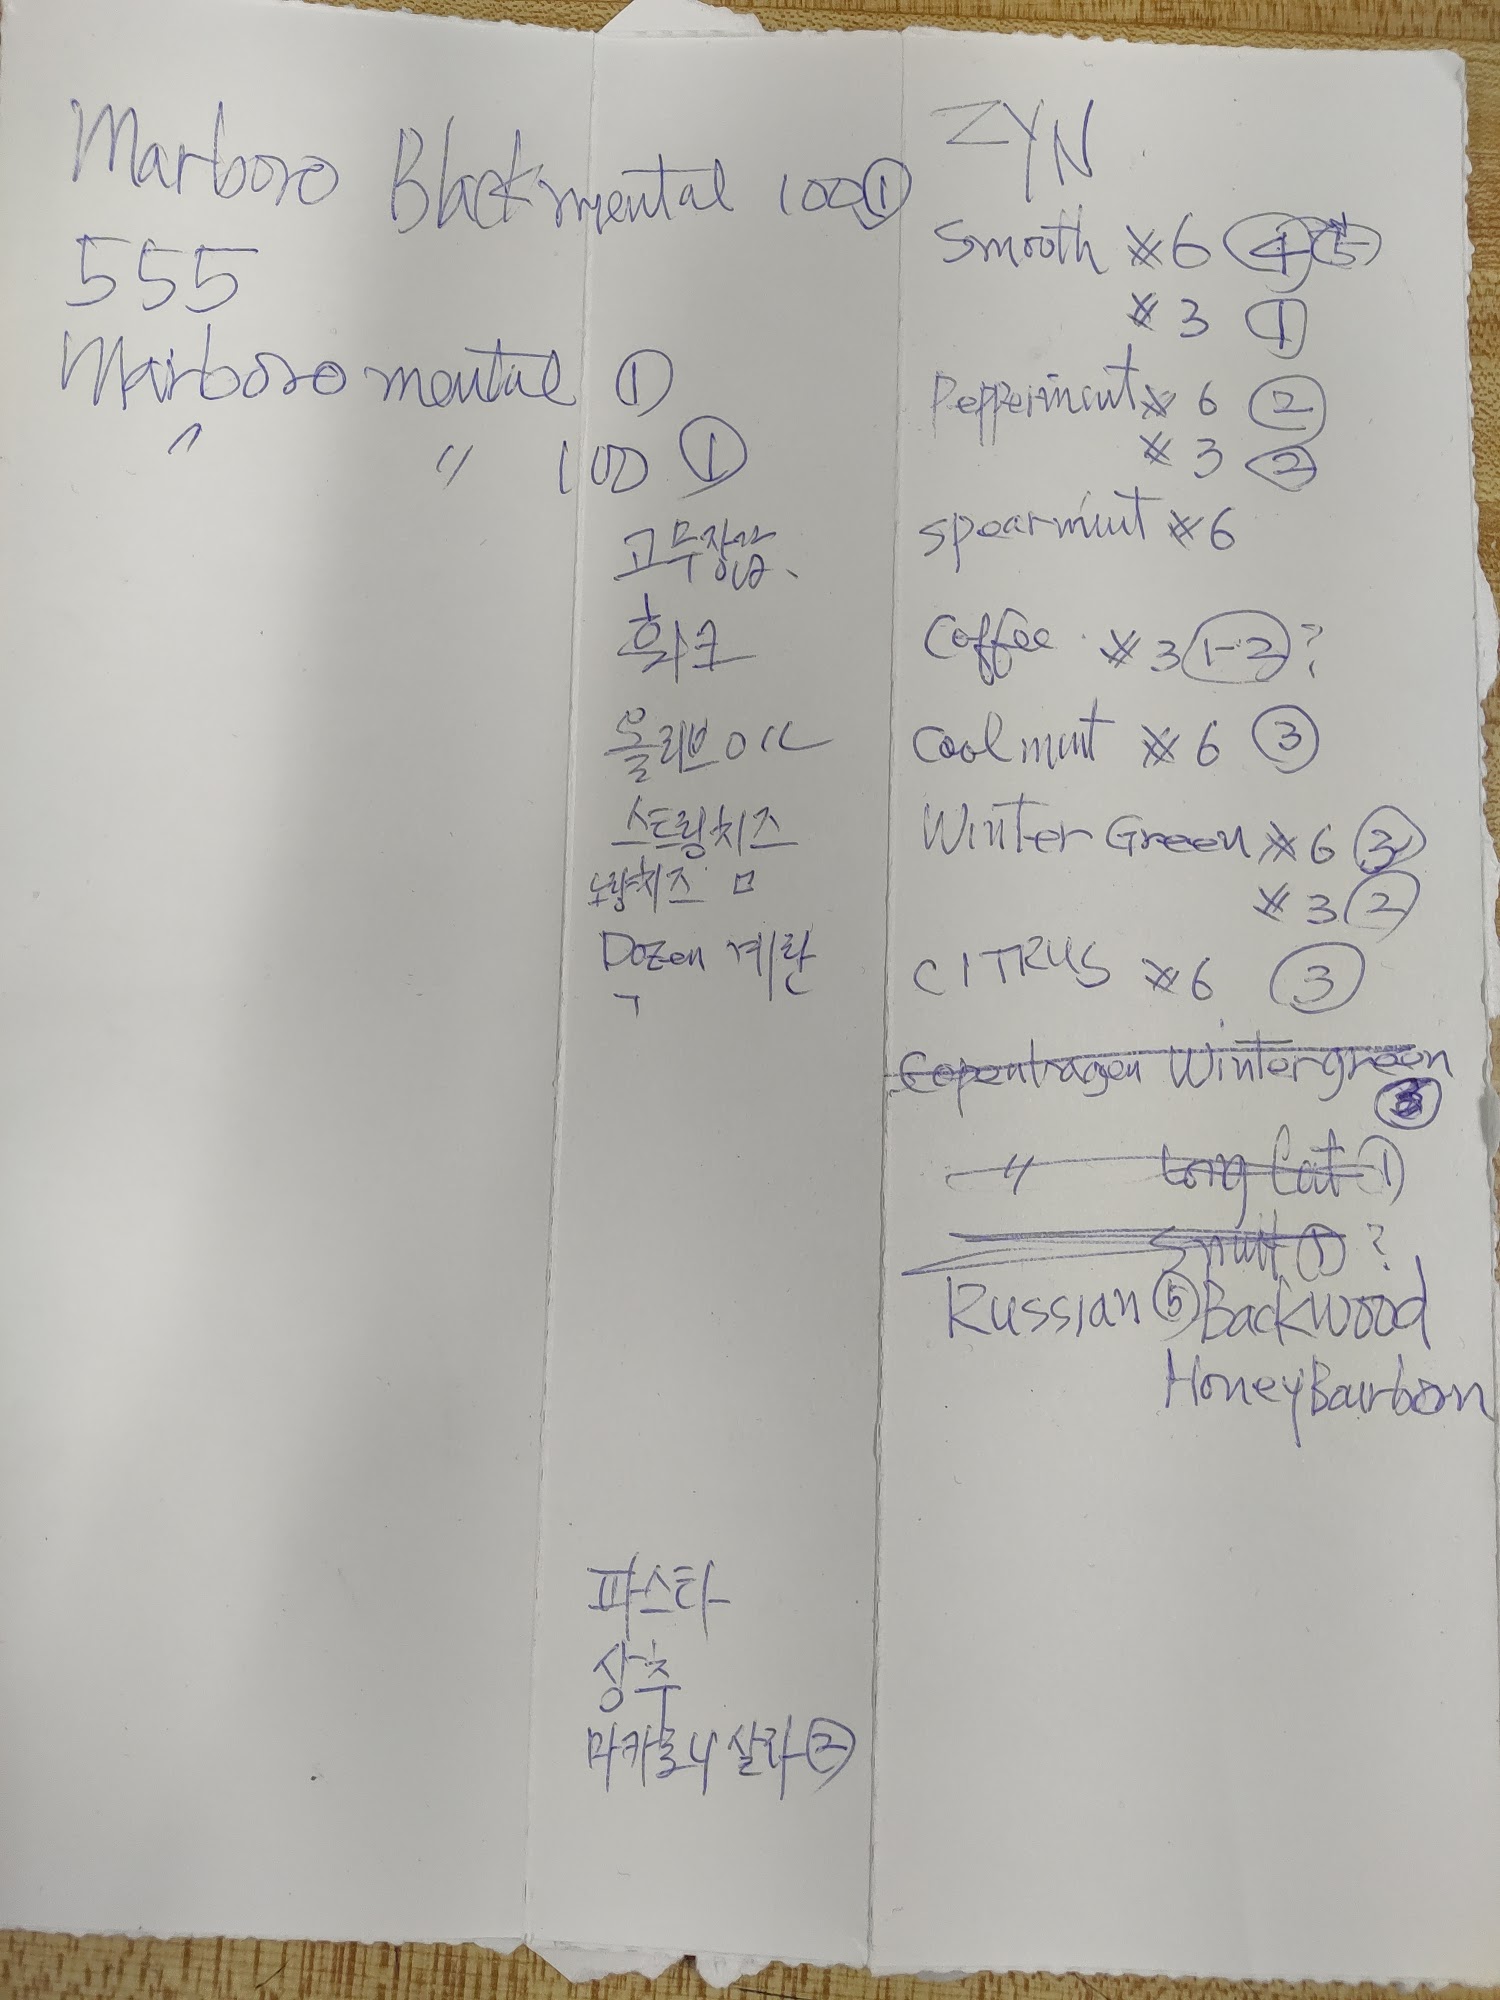 Marboro Black mental 100 ①
555
Marboro mental ①
〃 〃 100 ①
고무장갑
훠크
올리브 OIL
스트링치즈
노랑치즈 ㅁ
Dozen 계란
파스타
상추
마카로니 살라 ②
ZYN
Smooth #6 ④ ⑤
#3 ①
Peppermint #6 ②
#3 ②
Spearmint #6
Coffee #3 (1-2)?
Cool mint #6 ③
Winter Green #6 ③
#3 ②
CITRUS #6 ③
Copenhagen Wintergreen
③
〃 Long Cut ①
Snuff ① ?
Russian ⑤ Backwood
Honey Bourbon